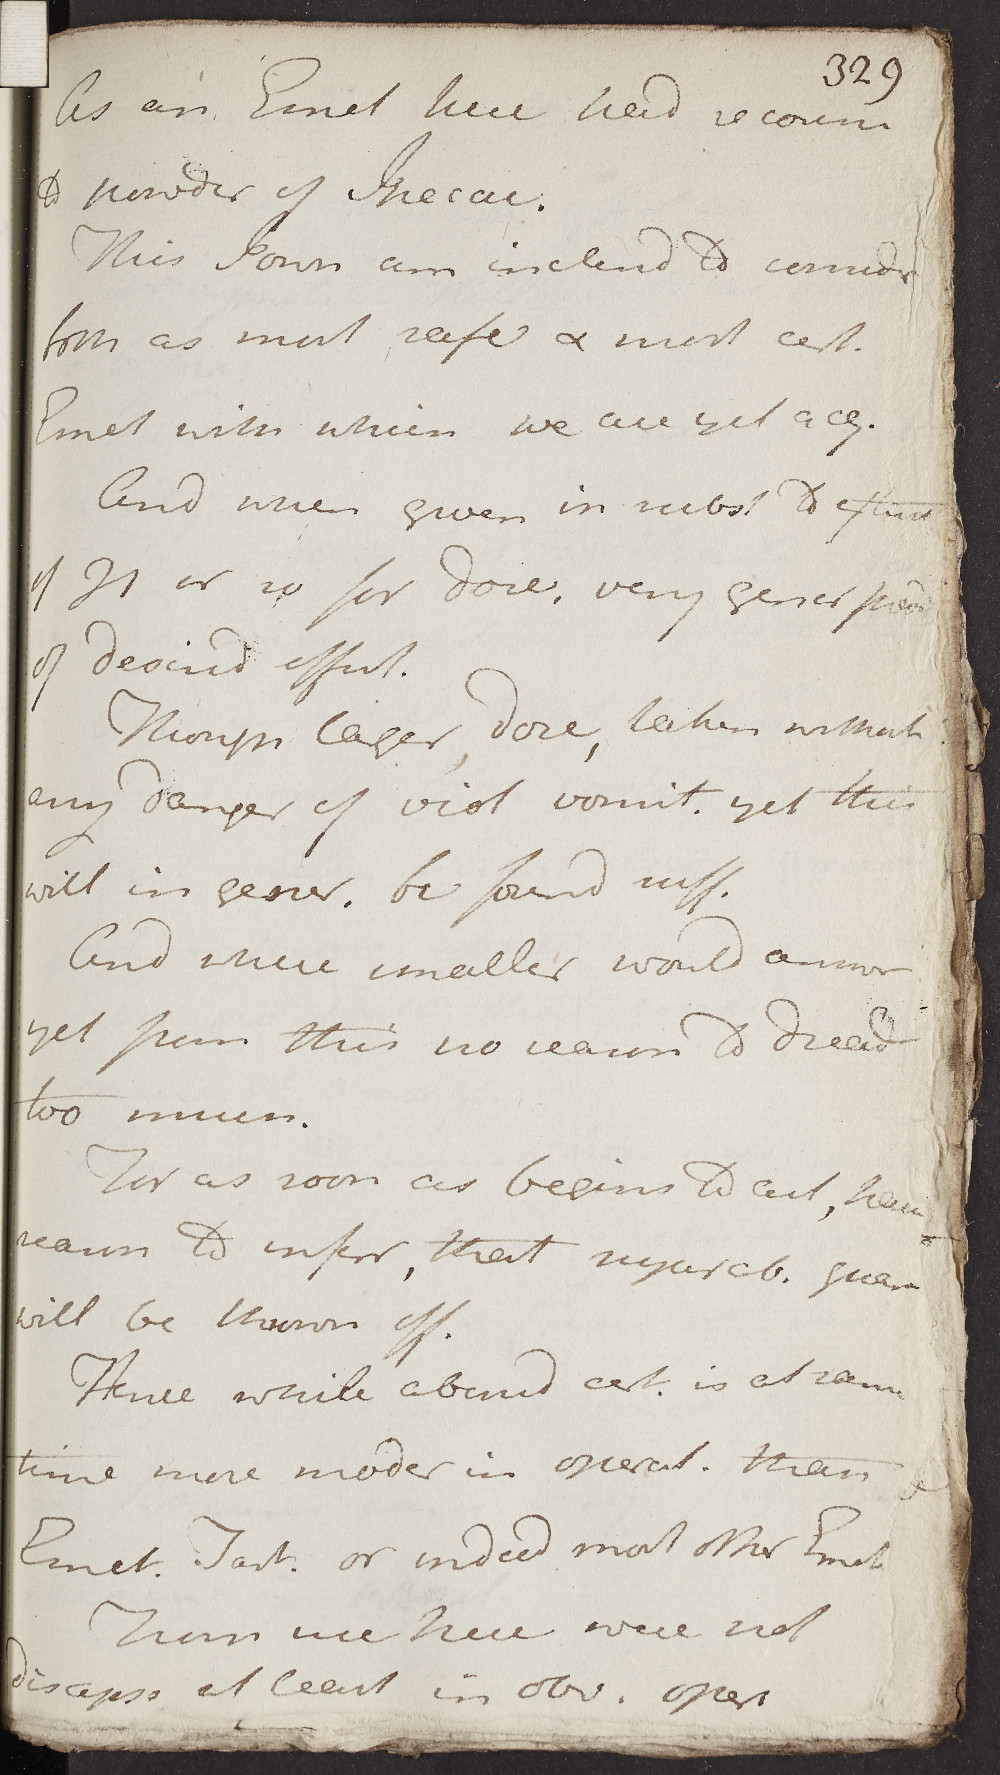 329
As an Emet here had recours
to powder of Ipecac.
This I own am inclend to consider
both as most safe & most cert.
Emet with which we are yet acq.
And when given in subst to extent
of ℈1 or so for dose, very gener prod
of desired effect.
Though larger dose, taken without
any danger of viol vomit. yet this
will in gener. be found suff.
And where smaller would answer
yet from this no reason to dread
too much.
For as soon as begins to act, have
reason to infer, that superab. quan
will be thrown off.
Hence while abund cert. is at same
time more moder in operat. than
Emet. Tart. or indeed most other Emet
From use here were not
disapp at least in obv. oper